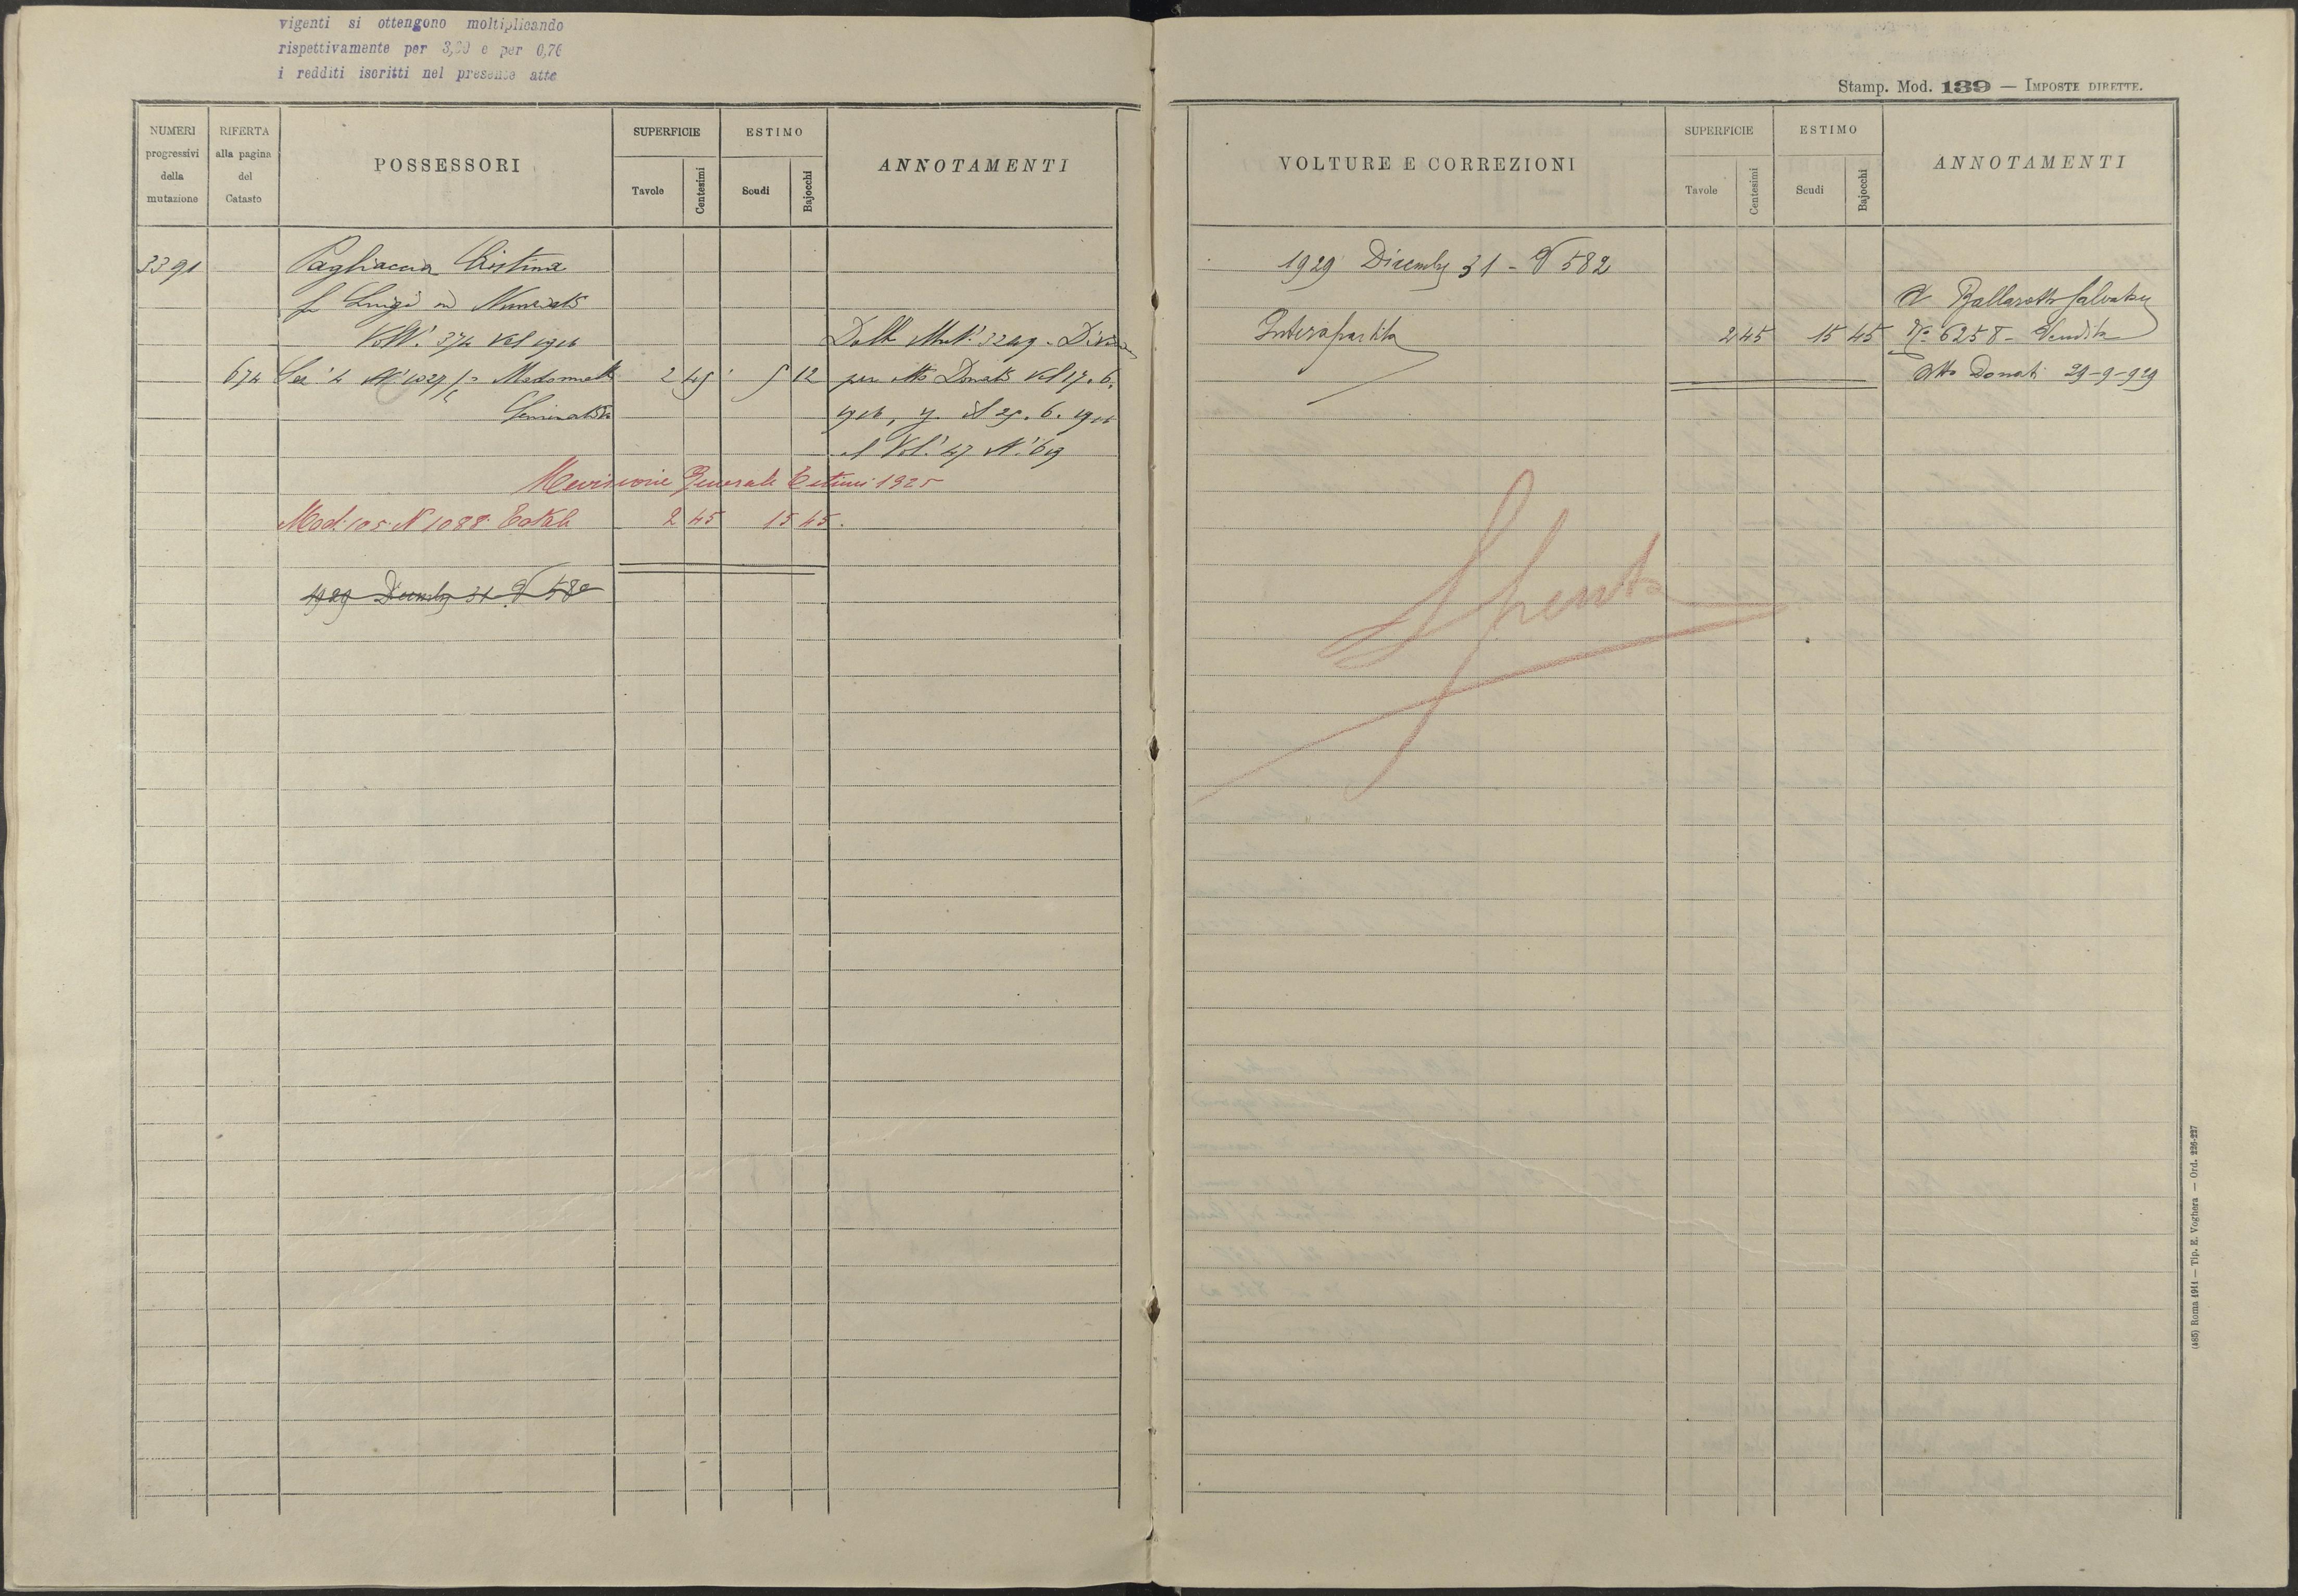 vigenti si ottengono moltiplicando
rispettivamente per 3,20 e per 0,76
i redditi iscritti nel presente atto
NUMERI progressivi della mutazione
RIFERTA alla pagina del Catasto
POSSESSORI
SUPERFICIE
Tavole
Centesimi
ESTIMO
Scudi
Bajocchi
ANNOTAMENTI
3391 Pagliaccia Cristina
fu Luigi in Nunziati
Volt. 374 del 1916
Dalla Mut. 3249 - Divisione
674 Sez. 4 N. 1027/ Madonnella 2 45 5 12 per atto Donati del 17.6.
Seminativo 1916, il 25.6.1916
al Vol. 47 N. 619
Revisione Generale Estimi 1925
Mod. 105 N 1088. Totale 2 45 15 45.
1929 Dicembre 31 V 582
Stamp. Mod. 139 — IMPOSTE DIRETTE.
VOLTURE E CORREZIONI
SUPERFICIE
Tavole
Centesimi
ESTIMO
Scudi
Bajocchi
ANNOTAMENTI
1929 Dicembre 31 - V 582
A Ballarotta Salvatore
Intera partita 2 45 15 45 N° 6258 - Vendita
Atto Donati 29-9-929
Spenta
(485) Roma 1914 — Tip. E. Voghera — Ord. 226-227